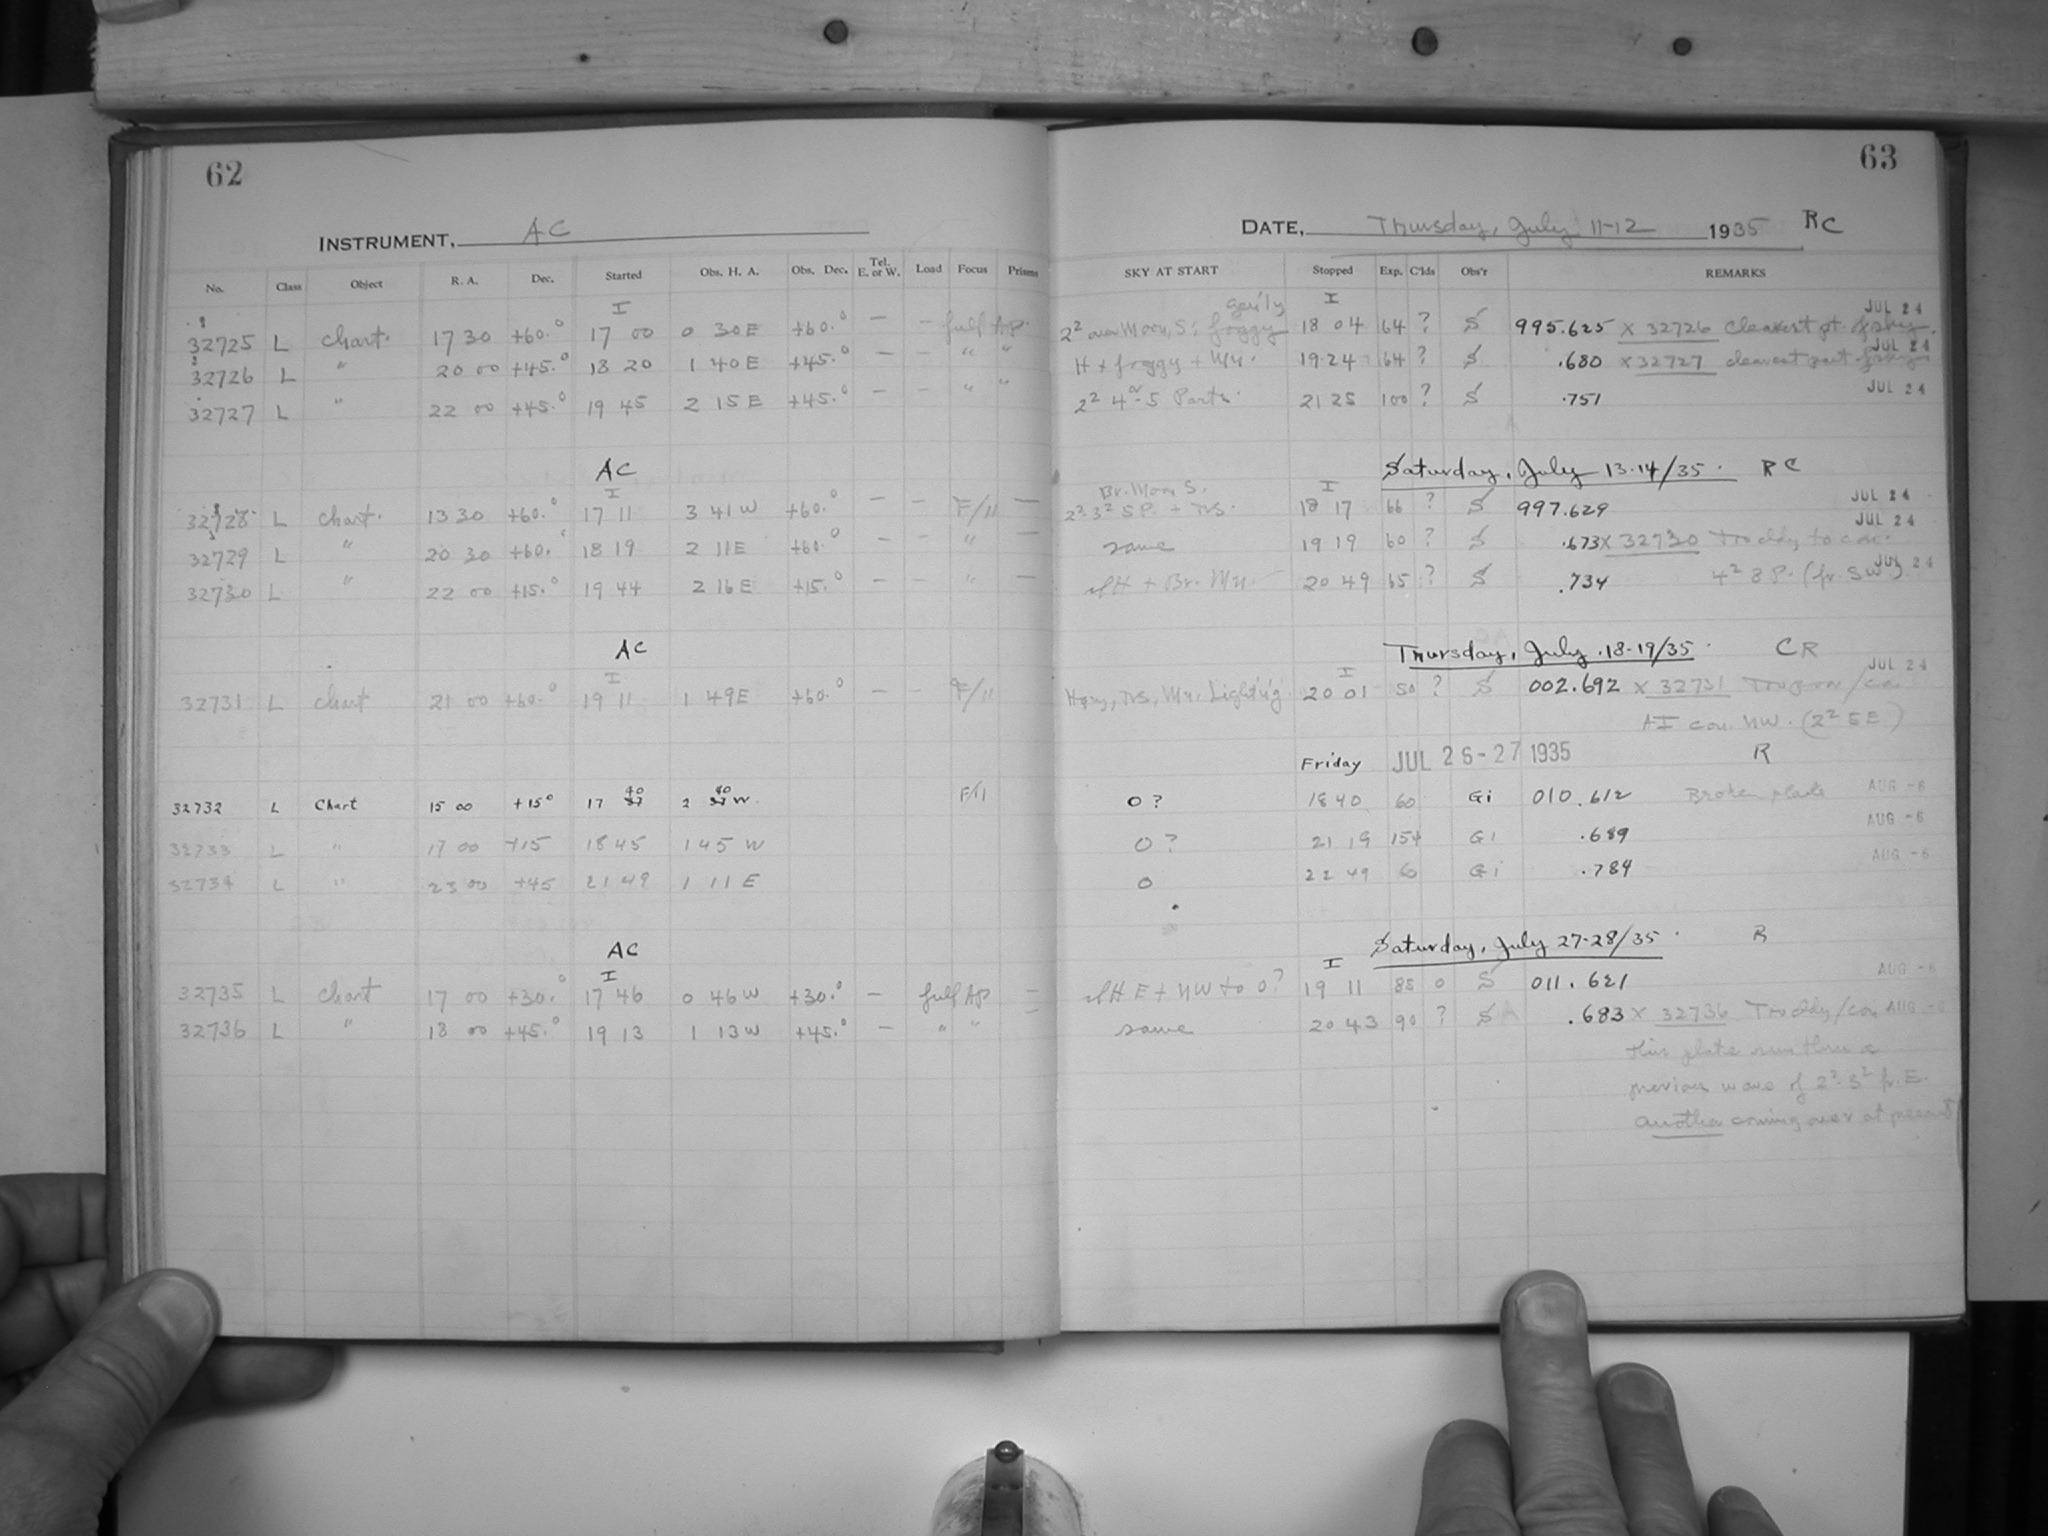 62
INSTRUMENT, AC
No. Class Object R. A. Dec. Started Obs. H. A. Obs. Dec. Tel. E. or W. Load Focus Prisms
I
32725 L Chart. 17 30 +60.° 17 00 0 30 E +60.° — — full Ap.
32726 L " 20 00 +45.° 18 20 1 40 E +45.° — — " "
32727 L " 22 00 +45.° 19 45 2 15 E +45.° — — " "
AC
I
32728 L Chart. 13 30 +60.° 17 11 3 41 W +60.° — — F/11 —
32729 L " 20 30 +60.° 18 19 2 11 E +60.° — — " —
32730 L " 22 00 +15.° 19 44 2 16 E +15.° — — " —
AC
I
32731 L Chart 21 00 +60.° 19 11 1 49 E +60.° — — F/11
32732 L Chart 15 00 +15° 17 40 2 40 W. F/11
32733 L " 17 00 +15 18 45 1 45 W
32734 L " 23 00 +45 21 49 1 11 E
AC
I
32735 L Chart 17 00 +30.° 17 46 0 46 W +30.° — full Ap —
32736 L " 18 00 +45.° 19 13 1 13 W +45.° — " " —
63
DATE, Thursday, July 11-12 1935 RC
SKY AT START Stopped Exp. C'lds Obs'r REMARKS
I JUL 24
2² Moon, S; foggy 18 04 64 ? S 995.625 X 32726 Clearest pt. of sky.
JUL 24
H + foggy + Mn. 19 24 64 ? S .680 X 32727 clearest part of sky
2² 4² or 5 Parts. 21 25 100 ? S .751 JUL 24
Saturday, July 13-14/35. RC
Br. Moon S. I
2² 3² SP. + 18 17 66 ? S 997.629 JUL 24
same 19 19 60 ? S .673 X 32730 to con. JUL 24
H + Br. Mn. 20 49 65 ? S .734 4² 8 P. (fr. SW) JUL 24
Thursday, July 18-19/35. CR
I JUL 24
Hazy, Mn. Light'g 20 01 50 ? S 002.692 X 32731
con. NW. (2² 5E)
Friday JUL 26-27 1935 R
0 ? 18 40 60 Gi 010.612 Broken plate AUG -6
0 ? 21 19 154 Gi .689 AUG -6
0 22 49 60 Gi .784 AUG -6
Saturday, July 27-28/35. R
I
H E + NW to 0? 19 11 85 0 S 011.621 AUG -6
same 20 43 90 ? S .683 X 32736 AUG -6
this plate run thru a
previous wave of 2² 3² fr. E.
another coming over at present